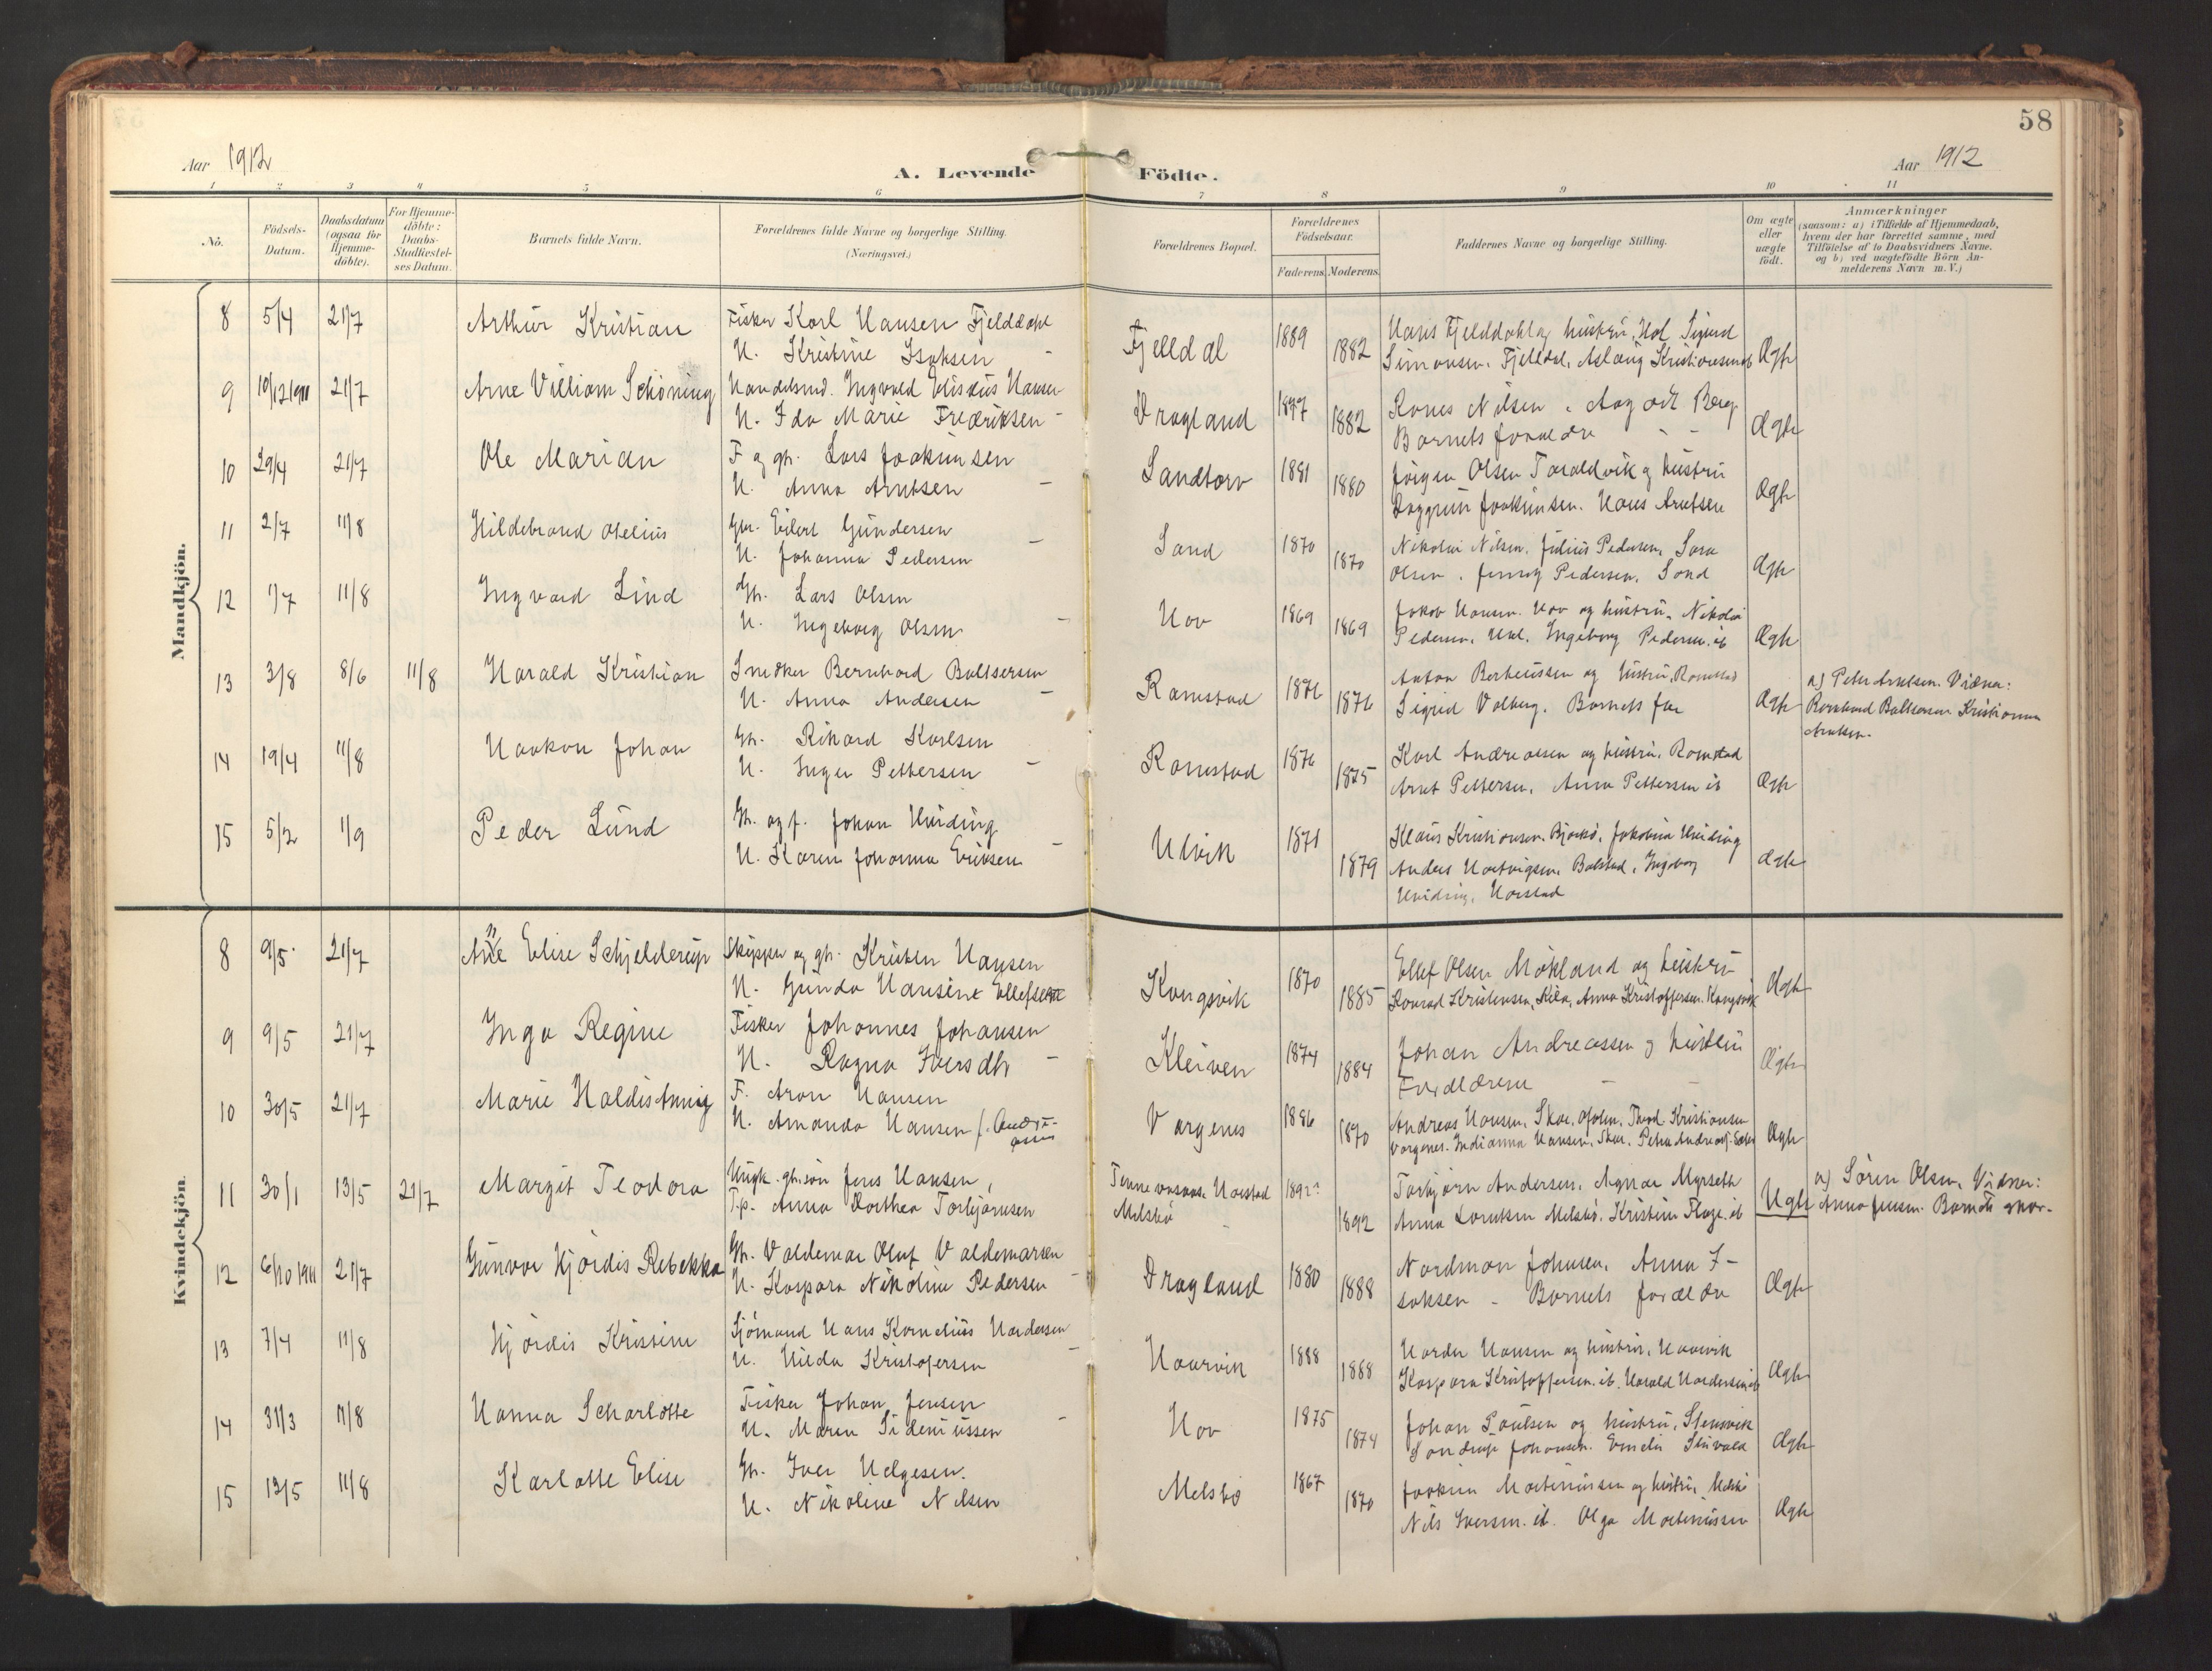 58
Aar 1912
A. Levende Födte.
Aar 1912
1 2 3 4 5 6 7 8 9 10 11
No.
Födsels-Datum.
Daabsdatum (ogsaa for Hjemme-döbte).
For Hjemme-döbte: Daabs-Stadfæstel-ses Datum.
Barnets fulde Navn.
Forældrenes fulde Navne og borgerlige Stilling.
(Næringsvei.)
Forældrenes Bopæl.
Forældrenes Födselsaar.
Faderens. Moderens.
Faddernes Navne og borgerlige Stilling.
Om ægte eller uægte födt.
Anmærkninger
(saasom: a) i Tilfælde af Hjemmedaab,
hvem der har forrettet samme, med
Tilföielse af to Daabsvidners Navne.
og b) ved uægtefödte Börn An-
melderens Navn m. V.)
Mandkjön.
8 5/4 21/7 Arthur Kristian Fisker Karl Hansen Fjelddahl Fjelldal 1889 Hans Fjelddahl og hustru. Hol Sigurd
H. Kristine Isaksen 1882 Simonsen. Fjelldal, Aslaug Kristiansen Ægte
9 10/12 1911 21/7 Arne Villiam Schöning Handelsmd. Ingvald Eliseus Hansen Dragland Hans Nilsen
H. Ida Marie Fredriksen 1882 Barnets forældre Ægte
10 29/4 21/7 Ole Marian F og gbr. Lars Joakimsen Sandtorv 1881 Jörgen Olsen Taraldvik og hustru
H. Anna Arntsen 1880 Joakimsen. Hans Arntsen Ægte
11 2/7 11/8 Hildebrand Gbr. Eilert Gundersen Sand 1870 Nikolai Nilsen, Julius Pedersen, Sara
H. Johanna Pedersen 1870 Olsen, Jenny Pedersen, Sand Ægte
12 1/7 11/8 Ingvard Lind Gbr. Lars Olsen Hov 1869 Jakob Hansen. Hov og hustru, Nikolai
H. Ingeborg Olsen 1869 Pedersen, Ingeborg Pedersen. ib Ægte
13 3/8 8/6 11/8 Harald Kristian Snedker Bernhard Baltsersen Ramstad 1876 Anton Bertheussen og hustru, Ramstad a) Peter Arntsen. Vidner:
H. Anna Andersen 1876 Sigrid Valberg. Barnets far Ægte Bernhard Baltsersen Kristianna
Arntsen.
14 19/4 11/8 Haakon Johan Gbr. Rikard Karlsen Ramstad 1876 Karl Andreassen og hustru. Ramstad
H. Inger Pettersen 1875 Arnt Pettersen, Anna Pettersen ib Ægte
15 5/2 1/9 Peder Lund Gbr. og f. Johan Hviding Ulvik 1871 Klaus Kristiansen. Bjarkö, Jakobina Hviding
H. Karen Johanna Eriksen 1879 Anders Hartvigsen, Balstad, Ingeborg Ægte
Hviding, Harstad
Kvindekjön.
8 9/5 21/7 Anne Elise Schjelderup Skipper og gbr. Kristen Hansen Kongsvik 1870 Ellef Olsen Mökland og hustru
H. Gunda Hansine Ellefsen 1885 Konrad Kristensen, Anna Kristoffersen. Kongsvik Ægte
9 9/5 21/7 Inga Regine Fisker Johannes Johansen Kleiven 1874 Johan Andreassen og hustru
H. Ragna Iversdtr 1884 Forældrene Ægte
10 30/5 21/7 Marie Haldis Annie F. Aron Hansen Vargenes 1886 Andreas Hansen, Skar. Ofoten, Kristiansen
H. Amanda Hansen f. 1890 Vargenes. Indianna Hansen, Skar. Ægte
11 30/1 13/5 21/7 Margit Teodora Ungk. gbr.sön Jens Hansen, 1892 Torbjörn Andersen, Agnar Myrseth a) Sören Olsen, Vidner:
T.p. Anna Dorthea Torbjörnsen Melsbö 1892 Anna Melsbö. Kristine ib Ugte Anna Jensen. Barnets mor.
12 6/10 1911 21/7 Gunvor Hjördis Rebekka Gbr. Valdemar Oluf Valdemarsen Dragland 1880 Nordman Johnsen, Anna I-
H. Kaspara Nikoline Pedersen 1888 saksen - Barnets forældre Ægte
13 7/4 11/8 Hjördis Kristine Sjömand Hans Kornelius Hardersen Haarvik 1888 Harder Hansen og hustru, Haarvik
H. Hilda Kristofersen 1888 Kaspara Kristoffersen. ib. Harald Hardersen ib Ægte
14 31/3 11/8 Hanna Scharlotte Fisker Johan Jensen Hov 1875 Johan Paulsen og hustru, Stensvik
H. Maren Sideniussen 1874 Johansen. Emelie Ægte
15 13/5 11/8 Karlotte Elise Gbr. Iver Helgesen. Melsbö 1867 Joakim Marteniussen og hustru, Melsbö
H. Nikoline Nilsen 1870 Nils Iversen. ib. Olga Marteniussen Ægte